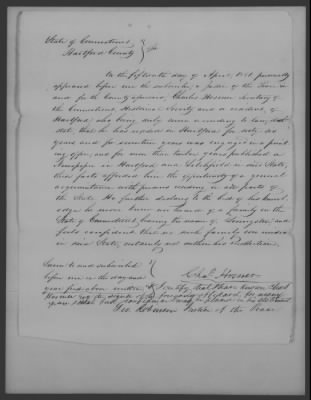 State of Connecticut
Hartford County } ss
On the fifteenth day of April, 1851 personally
appeared before me the subscriber, a justice of the Peace in
and for the County aforesaid, Charles Hosmer Secretary of
the Connecticut Historical Society and a resident of
Hartford, who being duly sworn according to law, doth
state that he has resided in Hartford for sixty six
years and for seventeen years was engaged in a print
ing office, and for more than twelve years published a
Newspaper in Hartford and Litchfield in said State,
that facts afforded him the opportunity of a general
acquaintance with persons residing in all parts of
the State. He further declares to the best of his knowl
edge he never knew or heard of a family in the
State of Connecticut, bearing the name of and
feels confident that no such family ever resided
in said State, certainly not within his recollection.
Sworn to and subscribed
before me in the day and
year first above written &
Chas. Hosmer
I certify that I have known Chas
Hosmer the signer of the foregoing affidavit for many
years & that full confidence may be placed in his statement
Geo Robinson Justice of the Peace